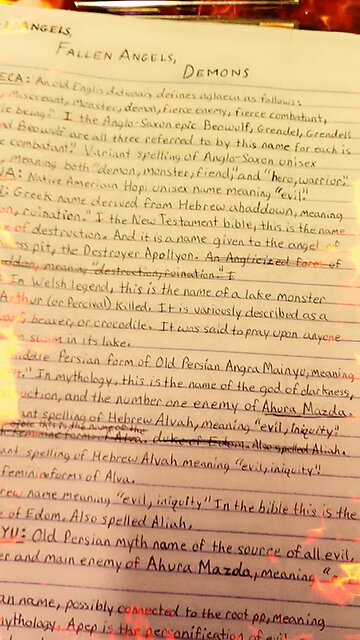 ANGELS,
FALLEN ANGELS,
DEMONS
ECA: An old Englis dationary defines aglaeca as follows:
miscreant, monster, demon, fierce enemy, fierce combatant,
le being." I the Anglo-Saxon epic Beowulf, Grendel, Grendel's
nd Beowulf are all three referred to by this name for each is
e combatant." Variant spelling of Anglo-Saxon unisex
, meaning both "demon, monster, fiend," and "hero, warrior."
Native American Hopi unisex name meaning "evil"
: Greek name derived from Hebrew abaddown, meaning
on, ruination." I the New Testament bible, this is the name
of destruction. And it is a name given to the angel of
ss pit, the Destroyer Apollyon. An Anglicized form of
addon, meaning "destruction, ruination." I
: In Welsh legend, this is the name of a lake monster
Arthur (or Percival) killed. It is variously described as a
beaver, or crocodile. It was said to pray upon anyone
swim in its lake.
iddle Persian form of Old Persian Angra Mainyu, meaning
t." In mythology, this is the name of the god of darkness,
uction, and the number one enemy of Ahura Mazda.
ant spelling of Hebrew Alvah, meaning "evil, iniquity"
bible this is the name of the
form of Alva. duke of Edom. Also spelled Aliah.
ant spelling of Hebrew Alvah meaning "evil, iniquity"
feminine forms of Alva.
rew name meaning "evil, iniquity" In the bible this is the
of Edom. Also spelled Aliah.
YU: Old Persian myth name of the source of all evil,
er and main enemy of Ahura Mazda, meaning "
an name, possibly connected to the root pp, meaning
ythology. Apep is the personification of evil